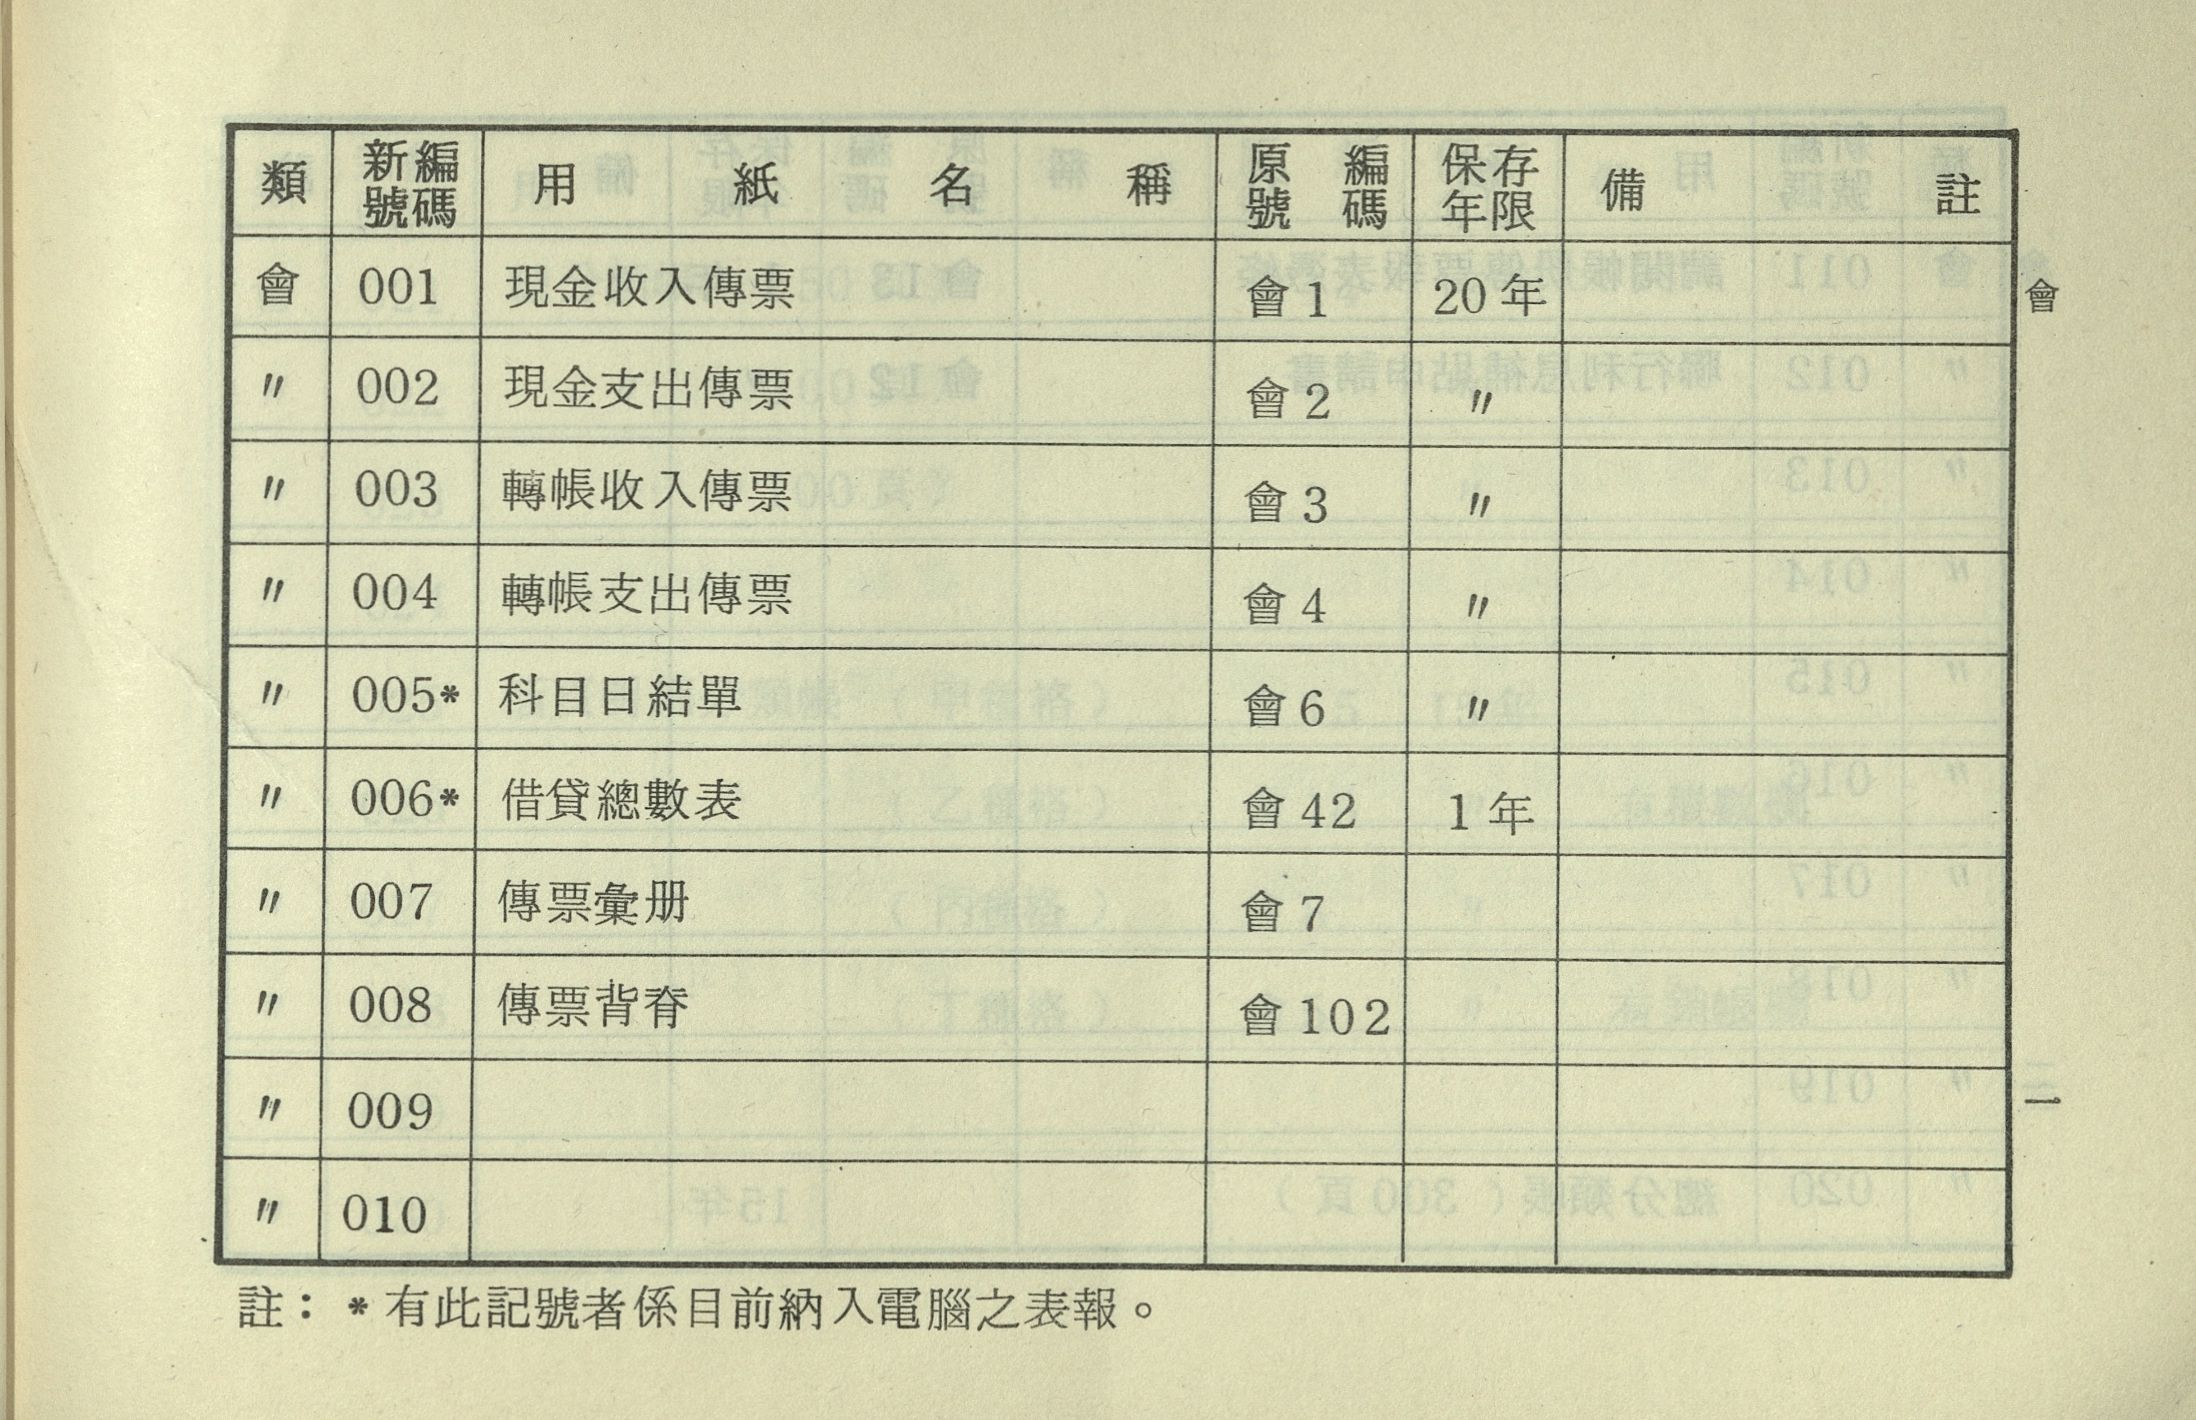 類 新編號碼 用紙名稱 原編號碼 保存年限 備註
會 001 現金收入傳票 會1 20年
〃 002 現金支出傳票 會2 〃
〃 003 轉帳收入傳票 會3 〃
〃 004 轉帳支出傳票 會4 〃
〃 005* 科目日結單 會6 〃
〃 006* 借貸總數表 會42 1年
〃 007 傳票彙册 會7
〃 008 傳票背脊 會102
〃 009
〃 010
註：*有此記號者係目前納入電腦之表報。
會
一